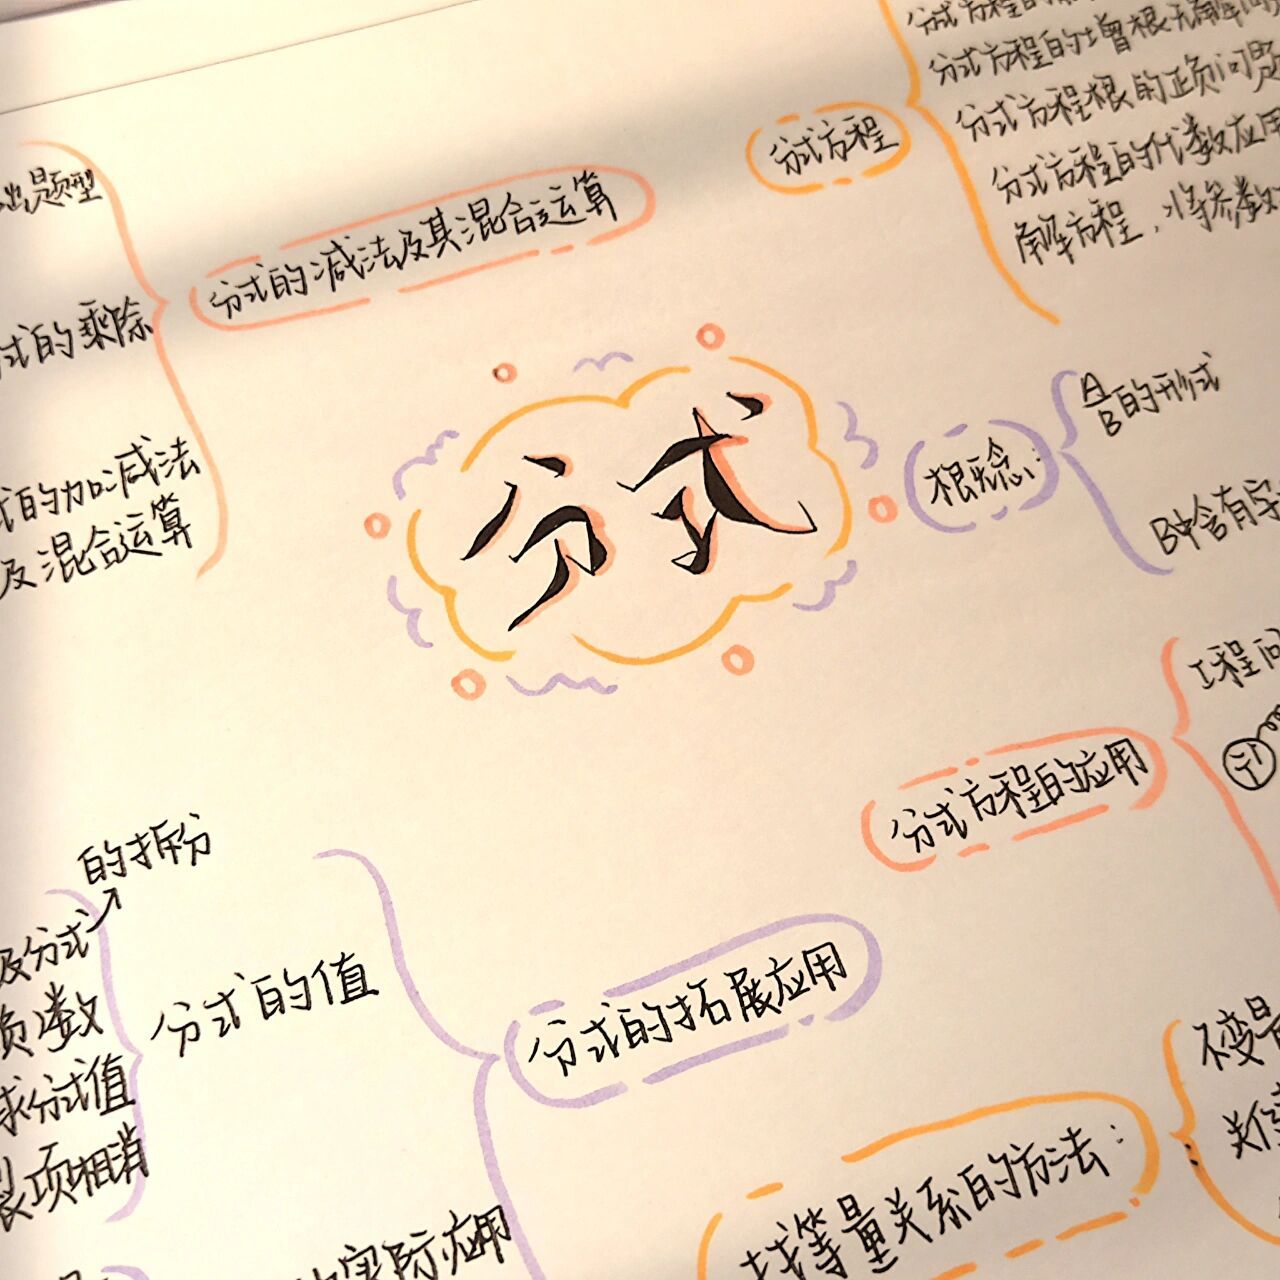 分式方程的增根无解问
分式方程根的正负问题
分式方程的代数应用
解方程，将参数
分式方程
题型
分式的减法及其混合运算
式的乘除
式的加减法
及混合运算
分式
概念:
A/B的形式
B中含有字
工程问
分式方程的应用
的拆分
及分式
负数
求分式值
裂项相消
分式的值
分式的拓展应用
实际应用
找等量关系的方法:
不变量